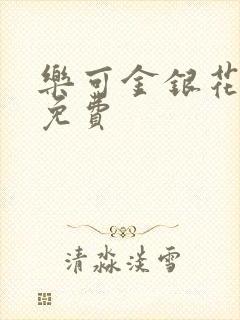 樂可金銀花
免費
清淼淡雪